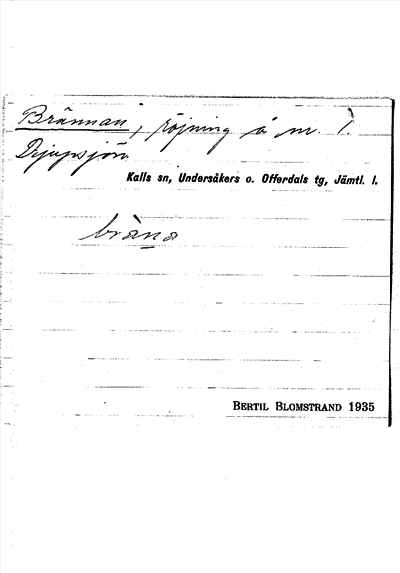 Brännan, röjning å m. l.
Djupsjön
Kalls sn, Undersåkers o. Offerdals tg, Jämtl. l.
bràna
BERTIL BLOMSTRAND 1935